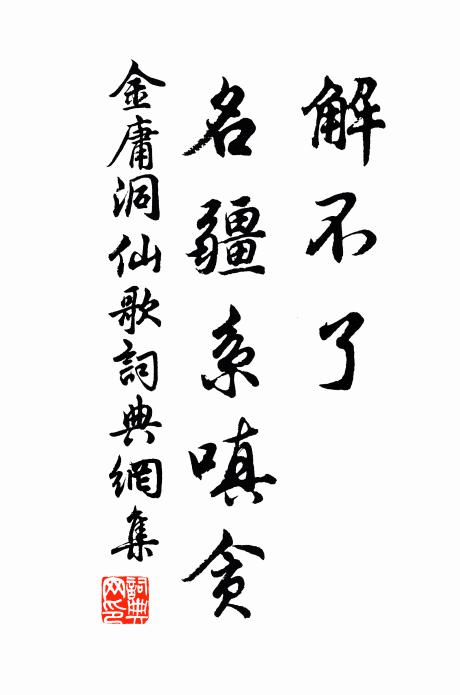 解不了
名疆系嗔贪
金庸洞仙歌詞典網集
詞典网印